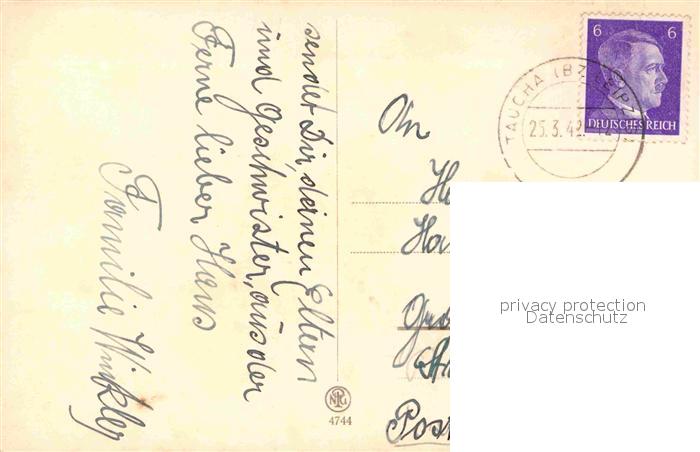 sendet Dir, deinen Eltern
und Geschwister, aus der
Ferne lieber Hans
Familie Winkler
An
Ha
Post
6 6
DEUTSCHES REICH
TAUCHA (BZ. LEIPZ
25.3.43
NPG
4744
privacy protection
Datenschutz